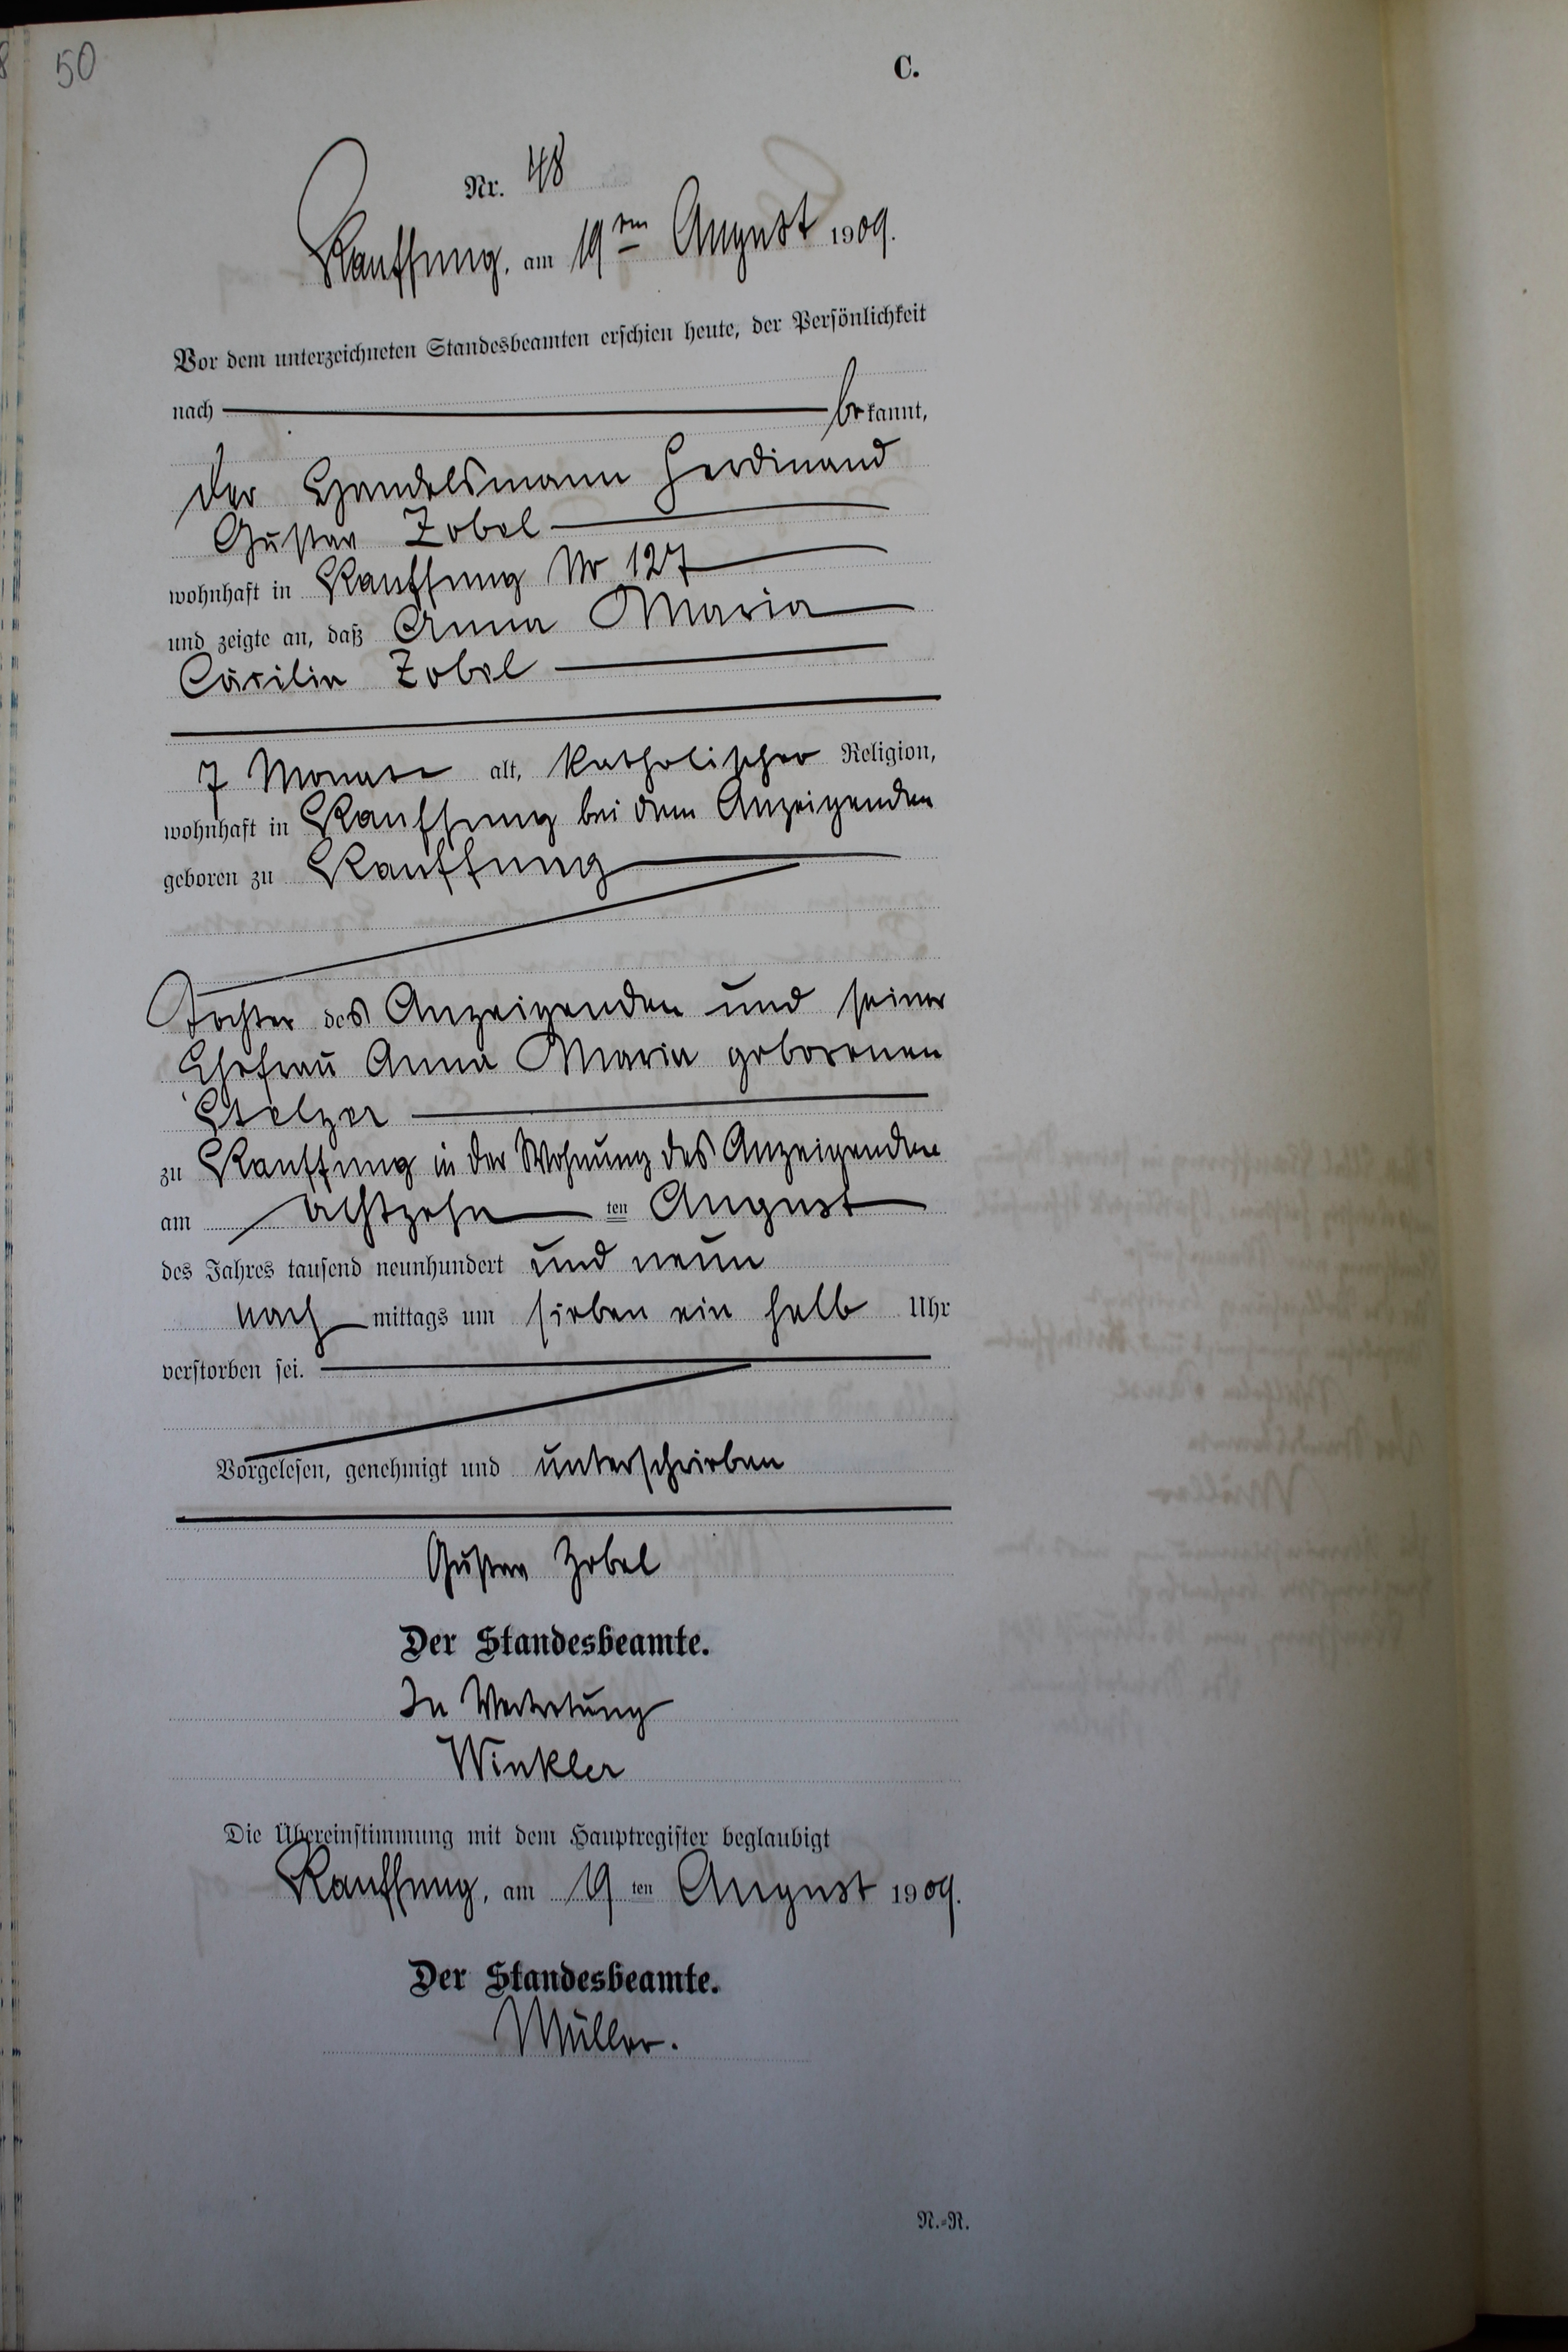 50
C.
Nr. 48
Kauffung, am 19ten August 1909.
Vor dem unterzeichneten Standesbeamten erschien heute, der Persönlichkeit
nach bekannt,
der Handelsmann Ferdinand
Gustav Zobel
wohnhaft in Kauffung Nr 127
und zeigte an, daß Anna Maria
Cäcilia Zobel
7 Monate alt, katholischer Religion,
wohnhaft in Kauffung bei dem Anzeigenden
geboren zu Kauffung
Tochter des Anzeigenden und seiner
Ehefrau Anna Maria geborenen
Stelzer
zu Kauffung in der Wohnung des Anzeigenden
am achtzehn ten August
des Jahres tausend neunhundert und neun
nach mittags um sieben ein halb Uhr
verstorben sei.
Vorgelesen, genehmigt und unterschrieben
Gustav Zobel
Der Standesbeamte.
In Vertretung
Winkler
Die Übereinstimmung mit dem Hauptregister beglaubigt
Kauffung, am 19 ten August 1909.
Der Standesbeamte.
Müller.
N.-R.